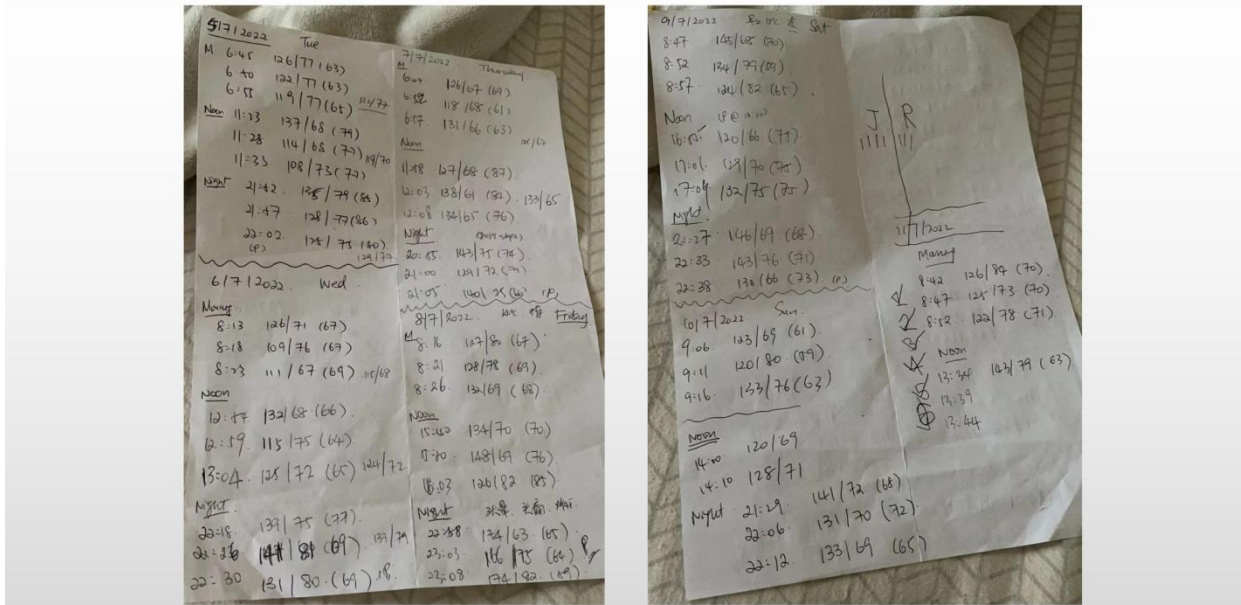 5/7/2022 Tue
M 6:45 126/77 (63)
6:50 122/77 (63)
6:55 119/77 (65) 122/77
Noon 11:23 137/68 (79)
11:28 114/68 (77)
11:33 108/73 (77) 119/70
Night 21:52 135/79 (85)
21:57 128/77 (86)
22:02 125/75 (80)
(P) 129/77
6/7/2022 Wed
8:13 126/71 (67)
8:18 109/76 (67)
8:23 111/67 (69) 115/68
Noon
12:54 132/68 (66)
12:59 115/75 (64)
13:04 125/72 (65) 124/72
Night
22:18 139/75 (77)
(69) 139/79
22:30 131/80 (69)
7/7/2022 Thursday
M
126/67 (69)
6:52 118/68 (61)
6:57 131/66 (63)
Noon
11:58 127/68 (87)
12:03 138/61 (84) 133/65
12:08 134/65 (76)
Night
20:55 143/75 (74)
21:00 129/72
21:05 (P)
8/7/2022 Friday
M
8:16 127/80 (67)
8:21 128/78 (69)
8:26 132/69 (68)
Noon
134/70 (70)
148/69 (76)
16:03 126/82 (85)
Night
22:58 134/63 (65)
23:03 /75 (64)
23:08 174/82
9/7/2022 Sat
8:47 145/68 (70)
8:52 134/79 (69)
8:57 124/82 (65)
Noon
16:55 120/66 (75)
17:01 129/70 (75)
17:06 132/75 (75)
Night
22:27 146/69 (68)
22:33 143/76 (71)
22:38 130/66 (73) (P)
10/7/2022 Sun
9:06 123/69 (61)
9:11 120/80 (59)
9:16 133/76 (63)
Noon
14:00 120/69
14:10 128/71
Night 21:29 141/72 (68)
22:06 131/70 (72)
22:12 133/69 (65)
J R
11/7/2022
8:42 126/84 (70)
8:47 125/73 (70)
8:52 122/78 (71)
Noon
13:34 143/79 (63)
13:39
13:44